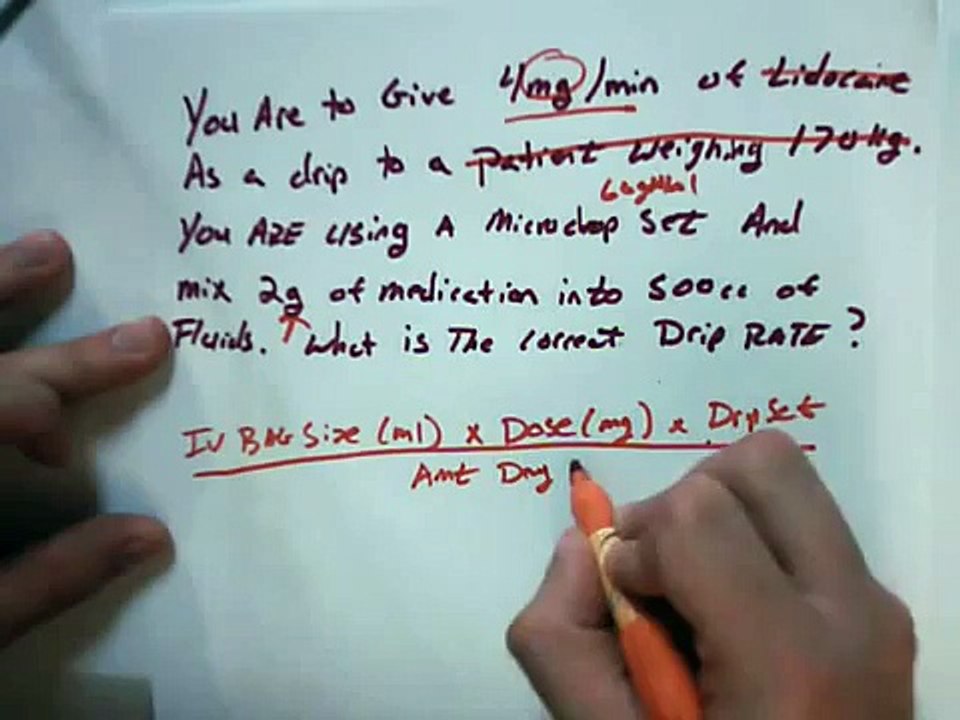 You Are to Give 4mg/min of Lidocaine
As a drip to a patient weighing 170 Kg.
60gtt/ml
You ARE using A Microdrop Set And
mix 2g of medication into 500cc of
Fluids. What is The correct Drip RATE?
IV BAG Size (ml) x Dose (mg) x Drip Set
Amt Drug